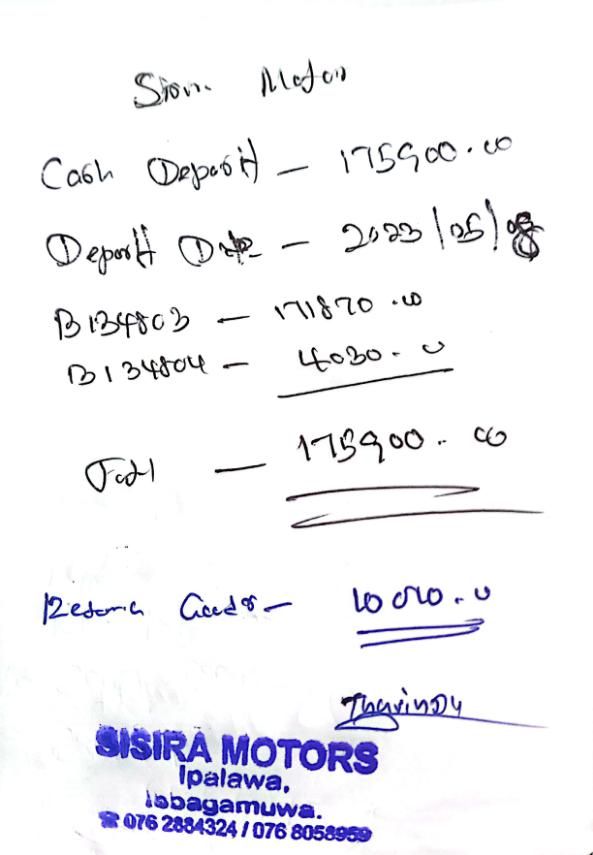 Cash Deposit - 175900.00
Deposit Date - 2023/05/08
B134803 - 171870.00
B134804 - 4030.0
Total - 175900.00
Goods -
Tharindu
SISIRA MOTORS
Ipalawa,
Ibbagamuwa.
☎ 076 2884324 / 076 8058959